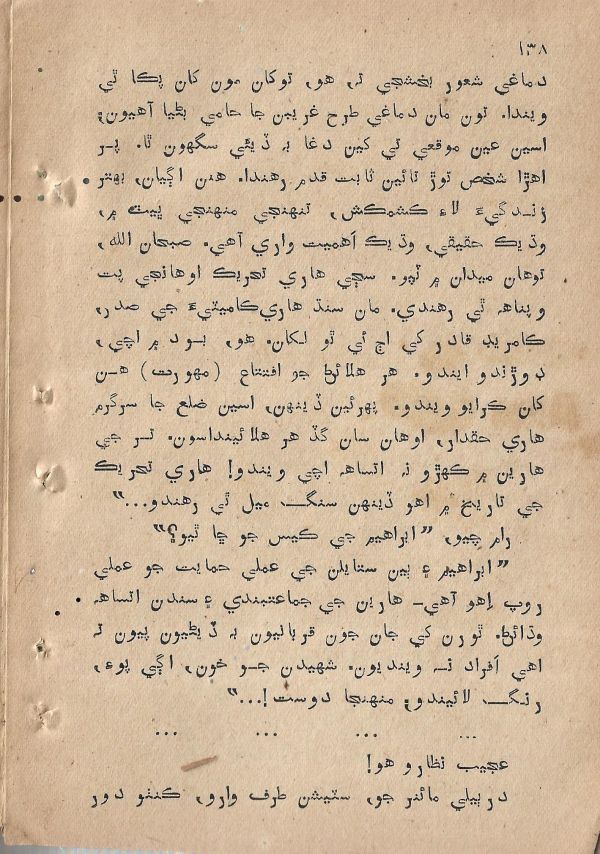 ۱۳۸
دماغي شعور بخشجي ته، هو، توکان مون کان پڪا ٿي
ويندا. تون مان دماغي طرح غريبن جا حامي بڻيا آهيون؛
اسين عين موقعي تي کين دغا به ڏيئي سگهون ٿا. پر
اهڙا شخص توڙ تائين ثابت قدم رهندا. هنن اڳيان، بهتر
زندگيءَ لاءِ ڪشمڪش، تنهنجي منهنجي ڀيٽ ۾،
وڌيڪ حقيقي، وڌيڪ اهميت واري آهي. صبحان الله،
توهان ميدان ۾ ٽپو. سڄي هاري تحريڪ اوهانجي پٺ
وپناهه ٿي رهندي. مان سنڌ هاري ڪاميٽيءَ جي صدر،
ڪامريڊ قادر کي اڄ ئي ٿو لکان. هو، بود ۾ اچي،
ڊوڙندو ايندو. هر هلائڻ جو افتتاح (مهورت) هن
کان ڪرايو ويندو. پهرئين ڏينهن، اسين ضلع جا سرگرم
هاري حقدار، اوهان سان گڏ هر هلائينداسون. تر جي
هارين ۾ ڪهڙو نه اتساهه اچي ويندو! هاري تحريڪ
جي تاريخ ۾ اهو ڏينهن سنگ ميل ٿي رهندو...”
رام چيو، ”ابراهيم جي ڪيس جو ڇا ٿيو؟”
”ابراهيم ۽ ٻين ستايلن جي عملي حمايت جو عملي
روپ اِهو آهي- هارين جي جماعتبندي ۽ سندن اتساهه
وڌائڻ. ٿورن کي جان جون قربانيون به ڏيڻيون پيون ته
اهي اَفراد نه وينديون. شهيدن جو خون، اڳي پوءِ،
رنگ لائيندو؛ منهنجا دوست!...”
... ... ... ...
عجيب نظارو هو!
درٻيلي مائنر جو، سٽيشن طرف وارو، ڪنٺو دور